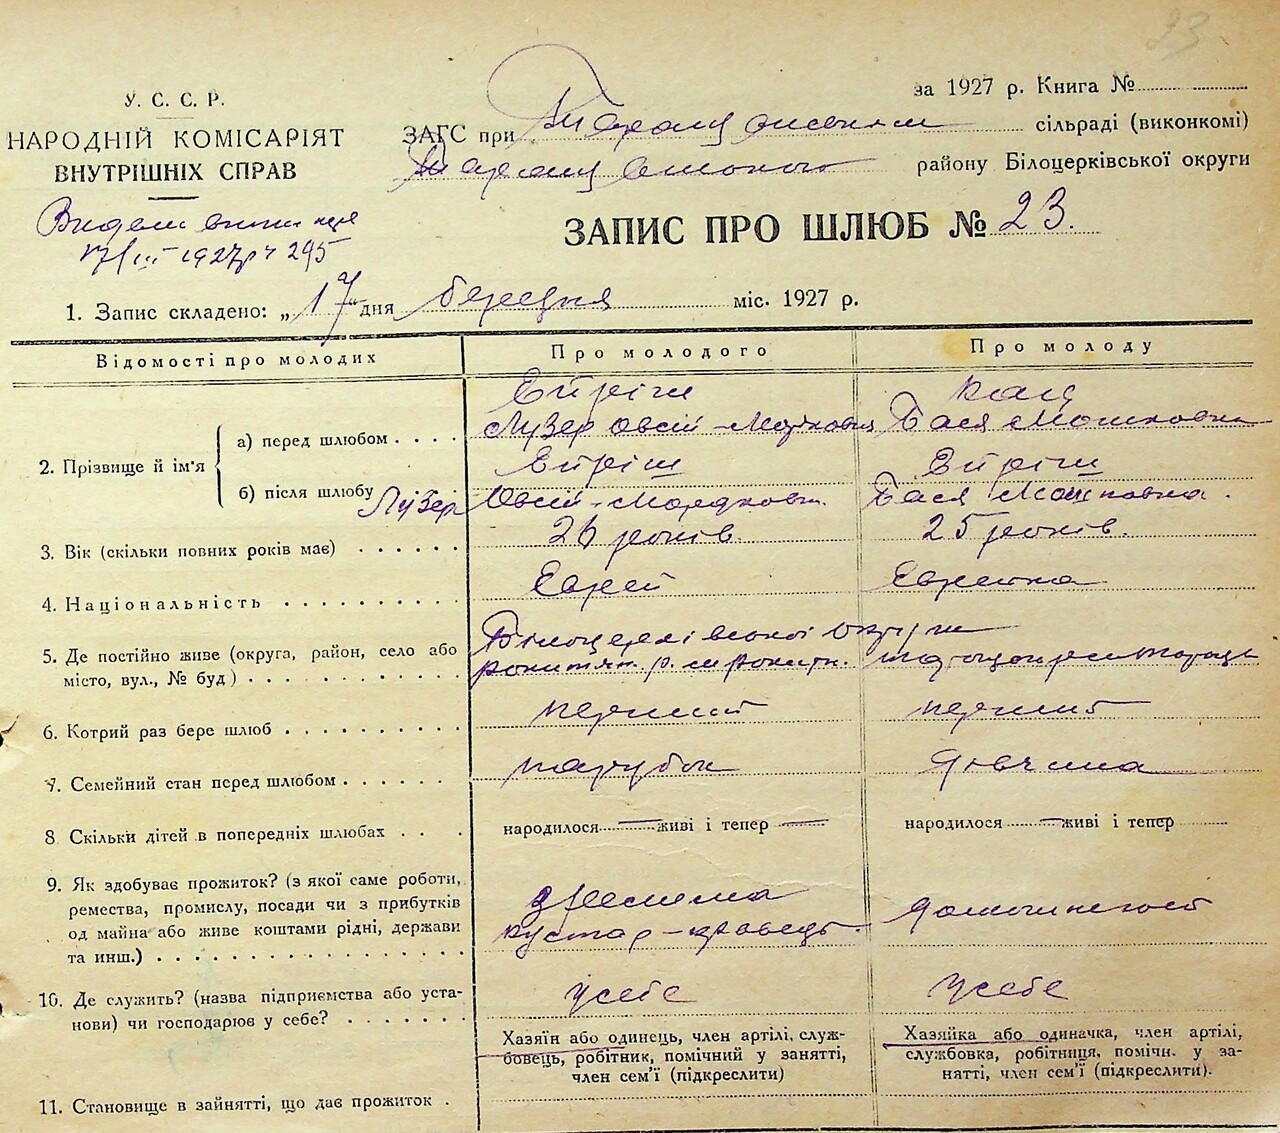 23
У. С. С. Р.
НАРОДНІЙ КОМІСАРІЯТ
ВНУТРІШНІХ СПРАВ
за 1927 р. Книга №
ЗАГС при Таращанськім сільраді (виконкомі)
Таращанського району Білоцерківської округи
17/III 1927 р ч 295
ЗАПИС ПРО ШЛЮБ № 23.
1. Запис складено: „17“ дня березня міс. 1927 р.
Відомості про молодих
Про молодого
Про молоду
2. Прізвище й ім'я
а) перед шлюбом
Ейріш
Лузер Овсій-Мордкович
Кац
Бася Мошковна
б) після шлюбу
Ейріш
Лузер Овсій-Мордкович
Ейріш
Бася Мошковна.
3. Вік (скільки повних років має)
26 років.
25 років.
4. Національність
Еврей
Еврейка
5. Де постійно живе (округа, район, село або
місто, вул., № буд)
Білоцерківської округи
рокитян. р. м Рокитн.
6. Котрий раз бере шлюб
перший
перший
7. Семейний стан перед шлюбом
парубок
дівчина
8 Скільки дітей в попередніх шлюбах
народилося — живі і тепер —
народилося — живі і тепер
9. Як здобуває прожиток? (з якої саме роботи,
ремества, промислу, посади чи з прибутків
од майна або живе коштами рідні, держави
та инш.)
з ремесла
кустар-кравець.
домашнєост
10. Де служить? (назва підприємства або уста-
нови) чи господарює у себе?
у себе
у себе
11. Становище в занятті, що дає прожиток
Хазяїн або одинець, член артілі, служ-
бовець, робітник, помічний у занятті,
член сем'ї (підкреслити)
Хазяйка або одиначка, член артілі,
службовка, робітниця, помічн. у за-
нятті, член сем'ї (підкреслити).